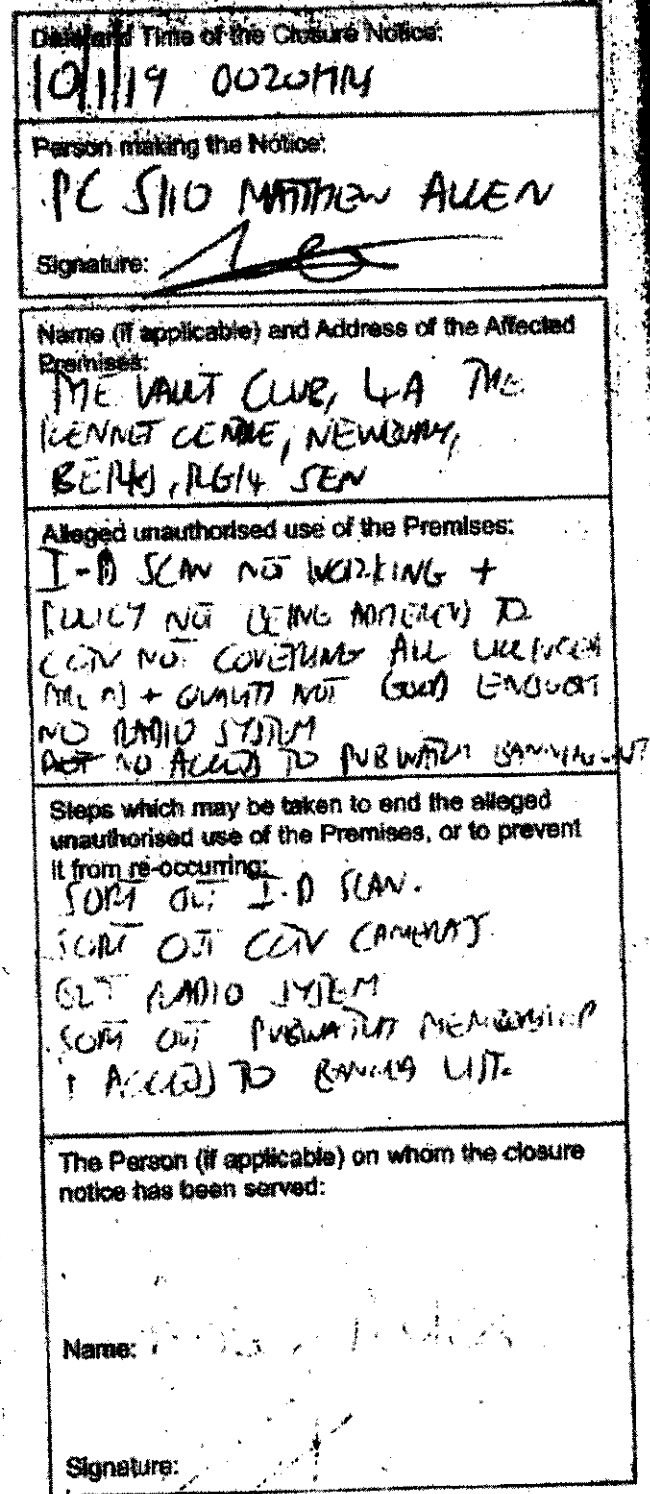 Date and Time of the Closure Notice:
10/1/19 0020HRS
Person making the Notice:
PC 5110 MATTHEW ALLEN
Signature:
Name (if applicable) and Address of the Affected
Premises:
THE VAULT CLUB, 4A THE
KENNET CENTRE, NEWBURY,
BERKS, RG14 5EN
Alleged unauthorised use of the Premises:
I-D SCAN NOT WORKING +
POLICY NOT BEING ADHERED TO
CCTV NOT COVERING ALL LICENCED
AREAS + QUALITY NOT GOOD ENOUGH
NO RADIO SYSTEM
NO ACCESS TO PUBWATCH
Steps which may be taken to end the alleged
unauthorised use of the Premises, or to prevent
it from re-occurring:
SORT OUT I-D SCAN.
SORT OUT CCTV CAMERAS.
GET RADIO SYSTEM
SORT OUT PUBWATCH MEMBERSHIP
+ ACCESS TO BANNED LIST.
The Person (if applicable) on whom the closure
notice has been served:
Name:
Signature: